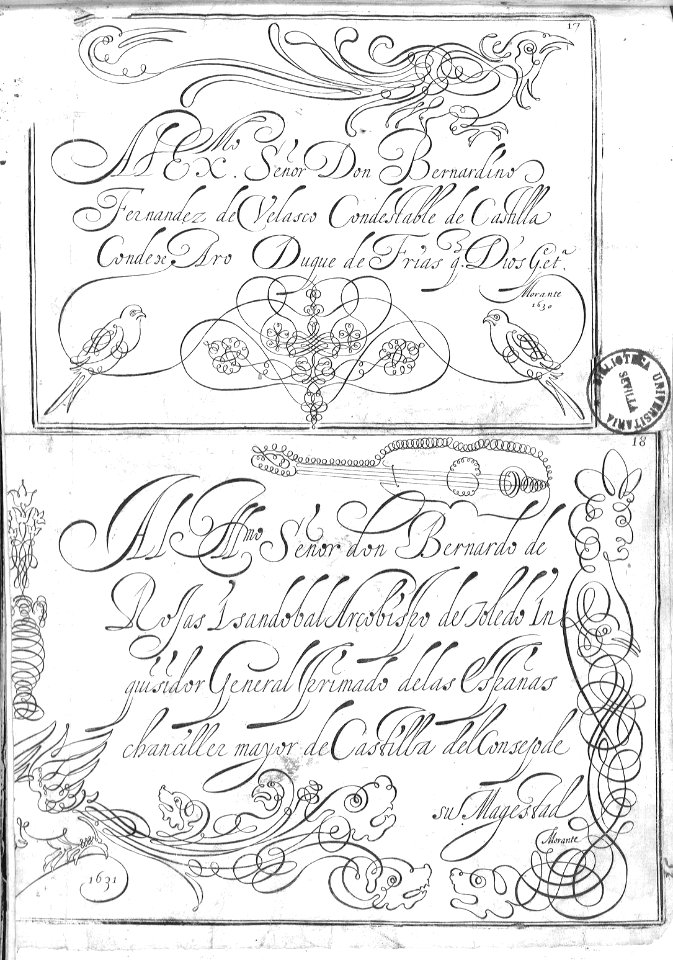 17
Al Ex.mo Señor Don Bernardino
Fernandez de Velasco Condestable de Castilla
Conde de Aro Duque de Frias q. Dios G.et.a
Morante
1630
BIBLIOTECA UNIVERSITARIA
SEVILLA
18
Al Ill.mo Señor don Bernardo de
Rojas i sandobal Arçobispo de Toledo in
quisidor General primado de las españas
chanciller mayor de Castilla del Consejo de
su Magestad
Morante
1631